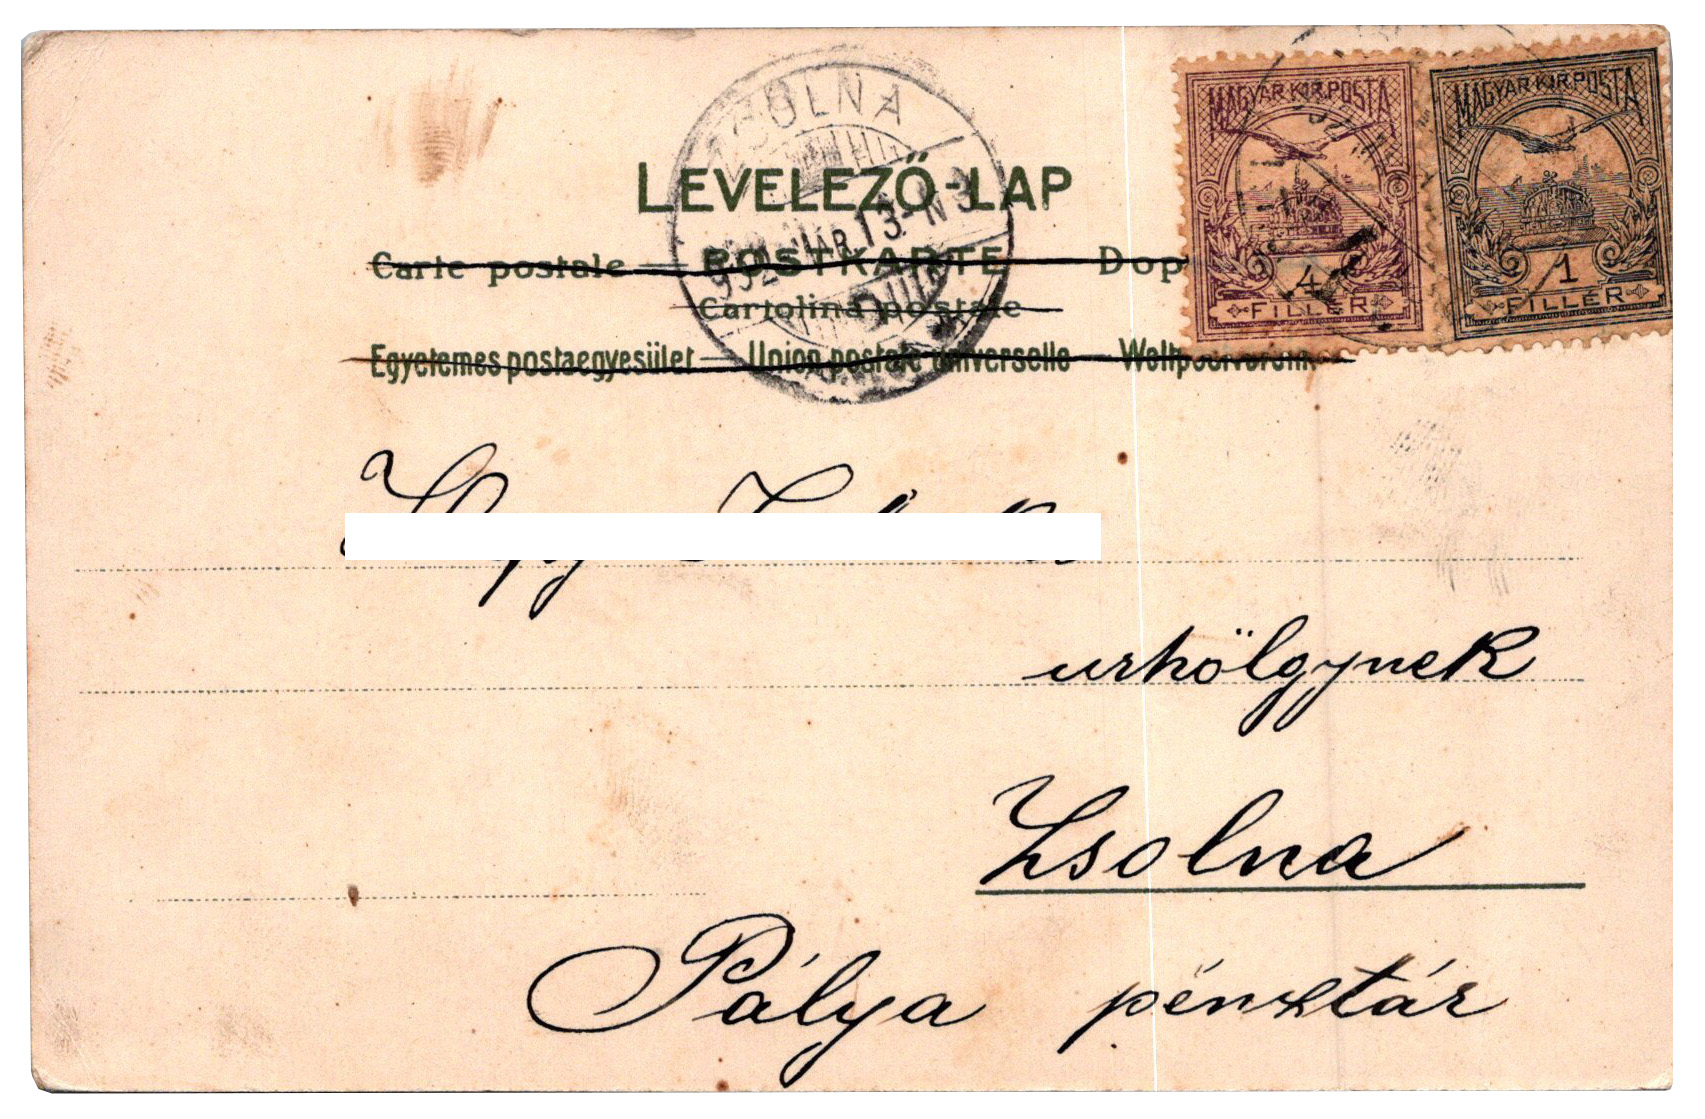 LEVELEZŐ-LAP
Carte postale — POSTKARTE — Dop
Cartolina postale
Egyetemes postaegyesület — Union postale universelle — Weltpostverein
ZSOLNA
MAR 13
MAGYAR KIR. POSTA
4
FILLÉR
MAGYAR KIR. POSTA
1
FILLÉR
urhölgynek
Zsolna
Pálya pénztár